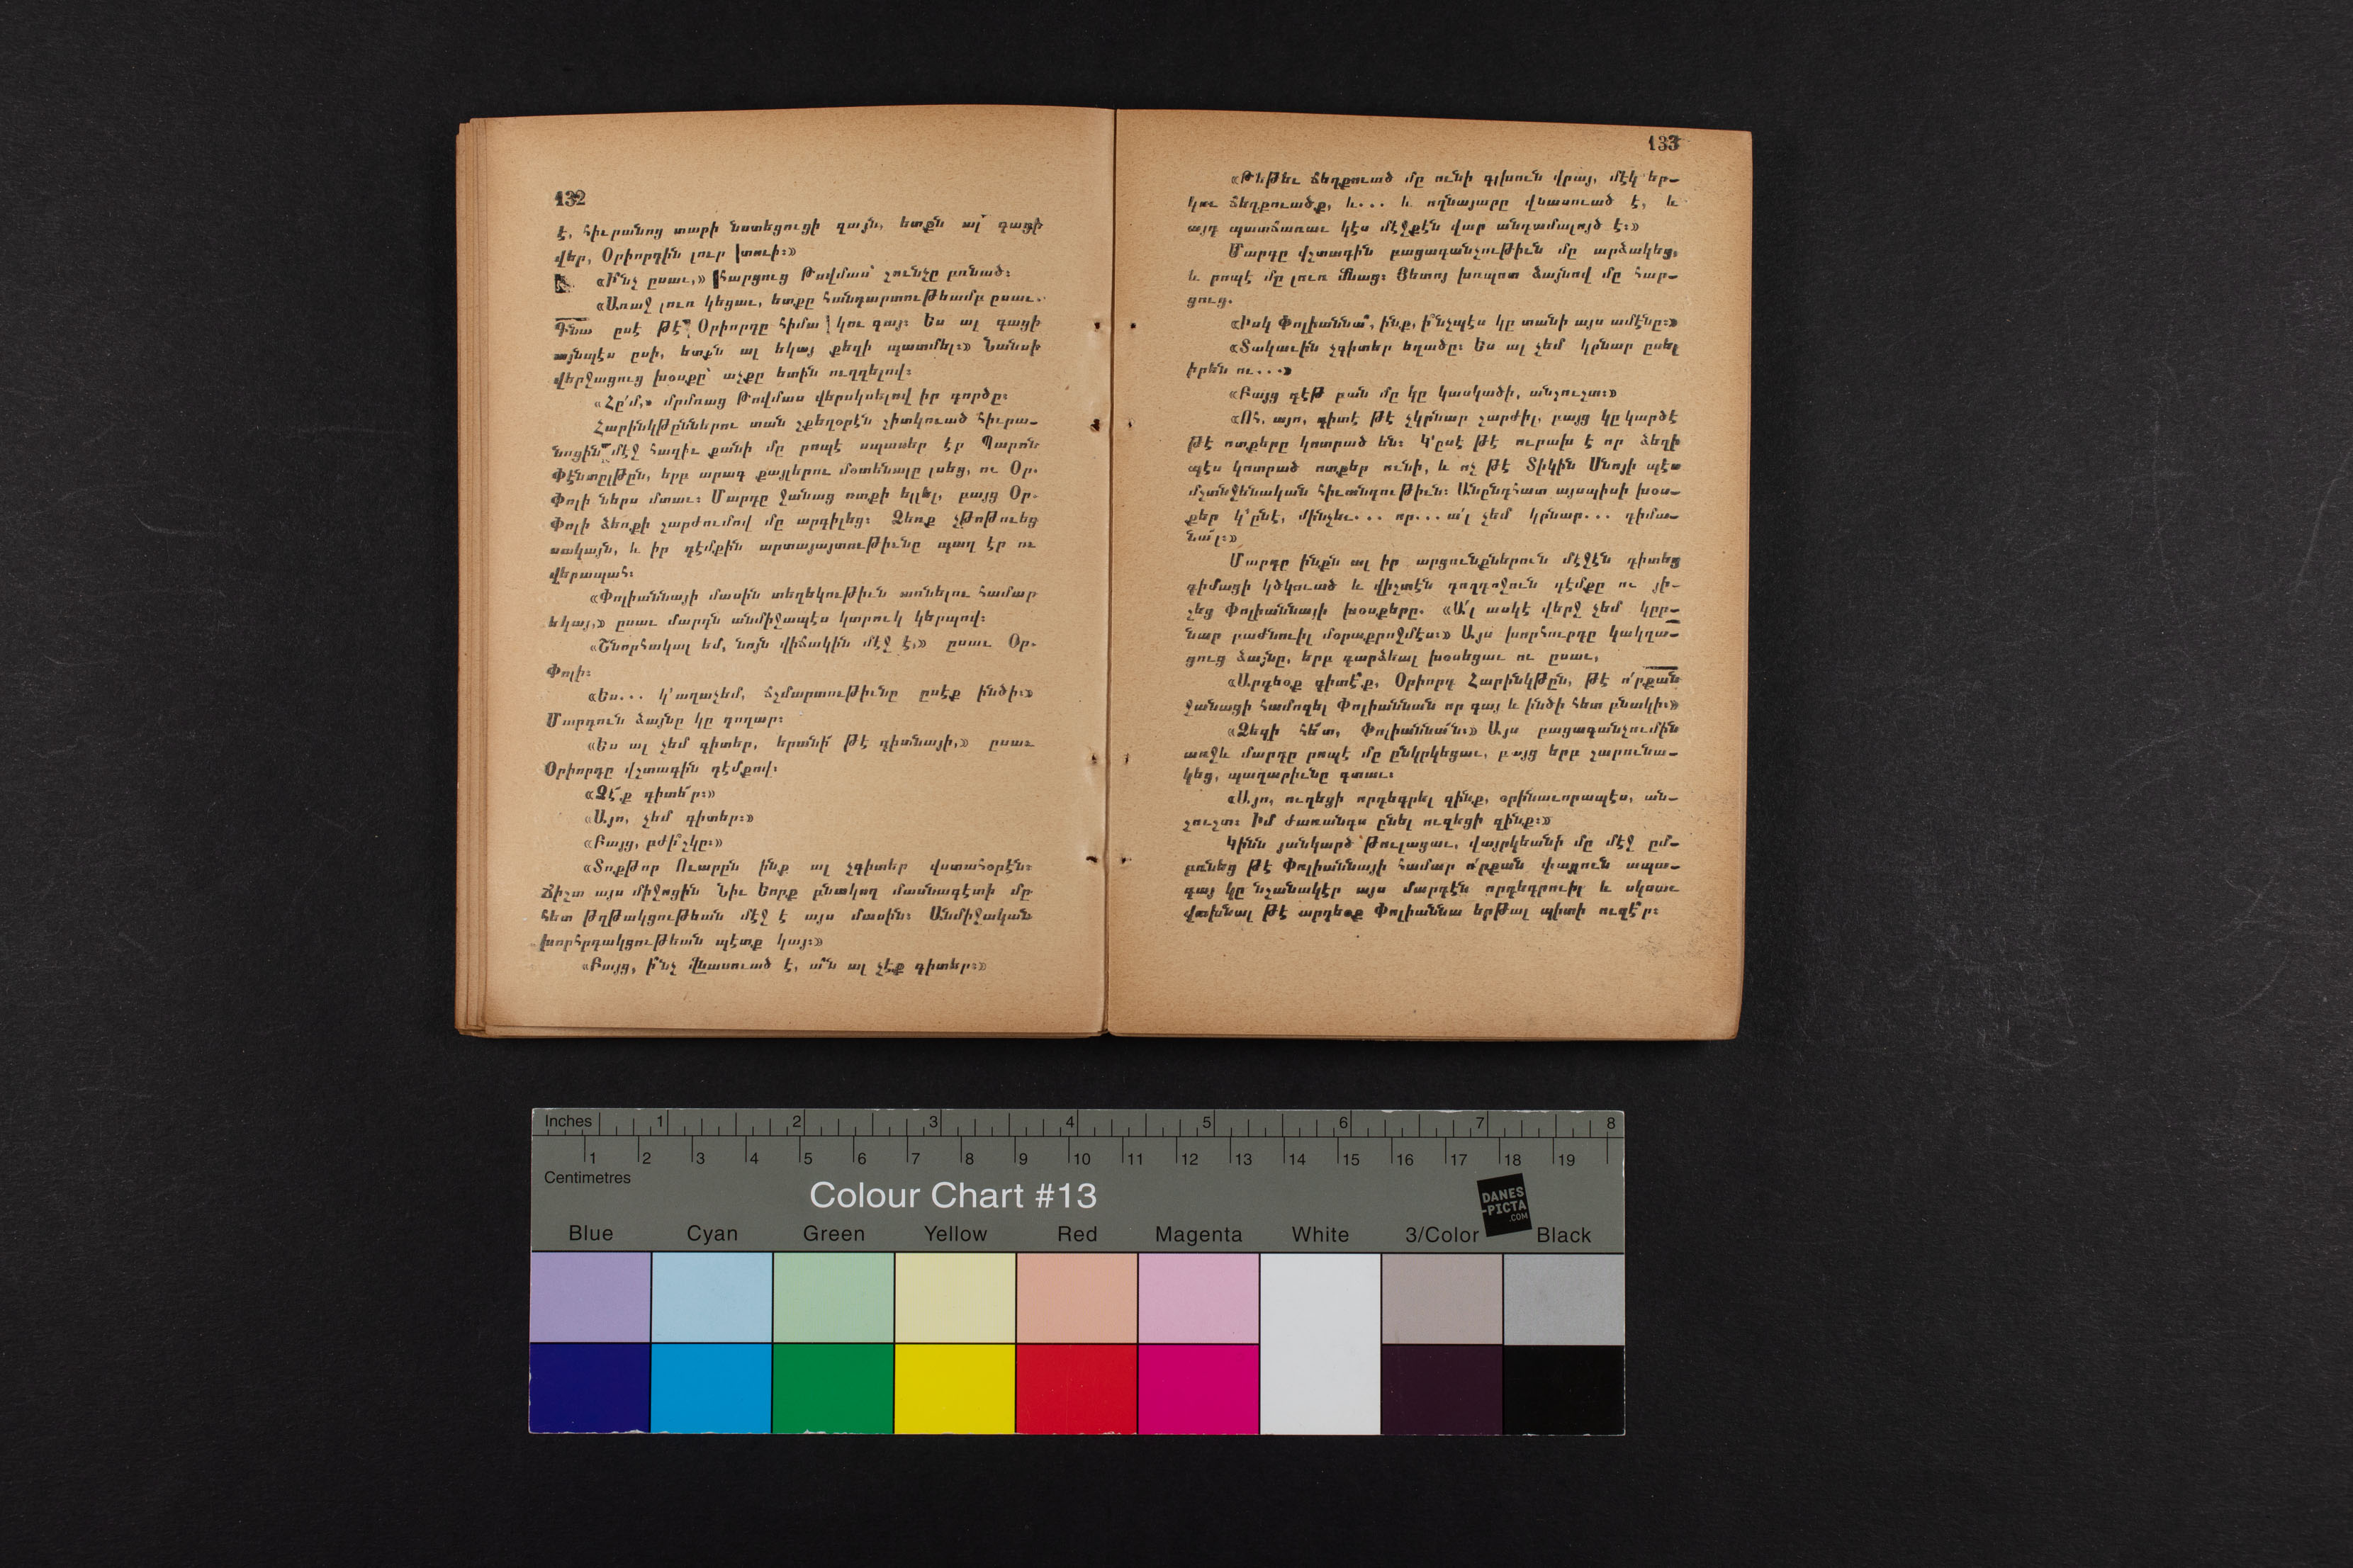 132
է, հիւրանոց տարի նստեցուցի զայն, ետքն ալ գացի
վեր, Օրիորդին լուր տուի։»
«Ի՞նչ ըսաւ,» հարցուց Թովմաս՝ շունչը բռնած։
«Առաջ լուռ կեցաւ, ետքը հանդարտութեամբ ըսաւ.
Գնա ըսէ թէ՝ Օրիորդը հիմա կու գայ։ Ես ալ գացի
այնպէս ըսի, ետքն ալ եկայ քեզի պատմել։» Նանսի
վերջացուց խօսքը՝ աչքը ետին ուղղելով։
«Հը՛մ,» մրմռաց Թովմաս վերսկսելով իր գործը։
Հարինկթըններու տան շքեղօրէն շիտկուած հիւրա-
նոցին մէջ հազիւ քանի մը րոպէ սպասեր էր Պարոն
Փէնտըլթըն, երբ արագ քայլերու մօտենալը լսեց, ու Օր.
Փոլի ներս մտաւ։ Մարդը ջանաց ոտքի ելլել, բայց Օր.
Փոլի ձեռքի շարժումով մը արգիլեց։ Ձեռք չթոթուեց
սակայն, և իր դէմքին արտայայտութիւնը պաղ էր ու
վերապահ։
«Փոլիաննայի մասին տեղեկութիւն առնելու համար
եկայ,» ըսաւ մարդն անմիջապէս կտրուկ կերպով։
«Շնորհակալ եմ, նոյն վիճակին մէջ է,» ըսաւ Օր.
Փոլի։
«Ես... կ'աղաչեմ, ճշմարտութիւնը ըսէք ինծի։»
Մարդուն ձայնը կը դողար։
«Ես ալ չեմ գիտեր, երանի՜ թէ գիտնայի,» ըսաւ
Օրիորդը վշտագին դէմքով։
«Չէ՞ք գիտեր։»
«Այո, չեմ գիտեր։»
«Բայց, բժի՞շկը։»
«Տոքթոր Ուարըն ինք ալ չգիտեր վստահօրէն։
Ճիշտ այս միջոցին Նիւ Եորք բնակող մասնագէտի մը
հետ թղթակցութեան մէջ է այս մասին։ Անմիջական
խորհրդակցութեան պէտք կայ։»
«Բայց, ի՞նչ վնասուած է, ա՞ն ալ չէք գիտեր։»
133
«Թեթեւ ճեղքուած մը ունի գլխուն վրայ, մէկ եր-
կու ճեղքուածք, և... և ողնայարը վնասուած է, և
այդ պատճառաւ կէս մէջքէն վար անդամալոյծ է։»
Մարդը վշտագին բացագանչութիւն մը արձակեց,
և րոպէ մը լուռ մնաց։ Յետոյ խռպոտ ձայնով մը հար-
ցուց.
«Իսկ Փոլիաննա՞, ինք, ի՞նչպէս կը տանի այս ամէնը։»
«Տակաւին չգիտեր եղածը։ Ես ալ չեմ կրնար ըսել
իրեն ու...»
«Բայց գէթ բան մը կը կասկածի, անշուշտ։»
«Ոհ, այո, գիտէ թէ չկրնար շարժիլ, բայց կը կարծէ
թէ ոտքերը կոտրած են։ Կ'ըսէ թէ ուրախ է որ ձեզի
պէս կոտրած ոտքեր ունի, և ոչ թէ Տիկին Սնոյի պէս
մշտնջենական հիւանդութիւն։ Անընդհատ այսպիսի խօս-
քեր կ'ընէ, մինչեւ... որ... ա՛լ չեմ կրնար... դիմա-
նա՛լ։»
Մարդը ինքն ալ իր արցունքներուն մէջէն դիտեց
դիմացի կծկուած և վիշտէն դողդոջուն դէմքը ու յի-
շեց Փոլիաննայի խօսքերը. «Ա՛լ ասկէ վերջ չեմ կըր-
նար բաժնուիլ մօրաքրոջմէս։» Այս խորհուրդը կակղա-
ցուց ձայնը, երբ դարձեալ խօսեցաւ ու ըսաւ,
«Արդեօք գիտէ՞ք, Օրիորդ Հարինկթըն, թէ ո՛րքան
ջանացի համոզել Փոլիաննան որ գայ և ինծի հետ բնակի։»
«Ձեզի հե՞տ, Փոլիաննա՛ն։» Այս բացագանչումին
առջև մարդը րոպէ մը ընկրկեցաւ, բայց երբ շարունա-
կեց, պաղարիւնը գտաւ։
«Այո, ուղեցի որդեգրել զինք, օրինաւորապէս, ան-
շուշտ։ Իմ ժառանգս ընել ուզեցի զինք։»
Կինն յանկարծ թուլացաւ, վայրկեանի մը մէջ ըմ-
բռնեց թէ Փոլիաննայի համար ո՛րքան փայլուն ապա-
գայ կը նշանակէր այս մարդէն որդեգրուիլ և սկսաւ
վախնալ թէ արդեօք Փոլիաննա երթալ պիտի ուզէ՞ր։
Inches 1 2 3 4 5 6 7 8
1 2 3 4 5 6 7 8 9 10 11 12 13 14 15 16 17 18 19
Centimetres
Colour Chart #13
DANES
-PICTA
.COM
Blue Cyan Green Yellow Red Magenta White 3/Color Black